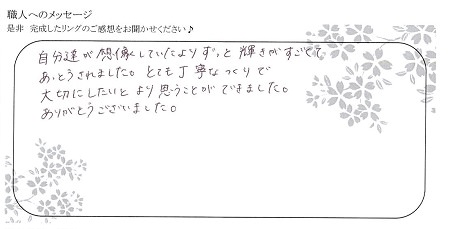 職人へのメッセージ
是非 完成したリングのご感想をお聞かせください♪
自分達が想像していたよりずっと輝きがすごくて
あっとうされました。とても丁寧なつくりで
大切にしたいとより思うことができました。
ありがとうございました。